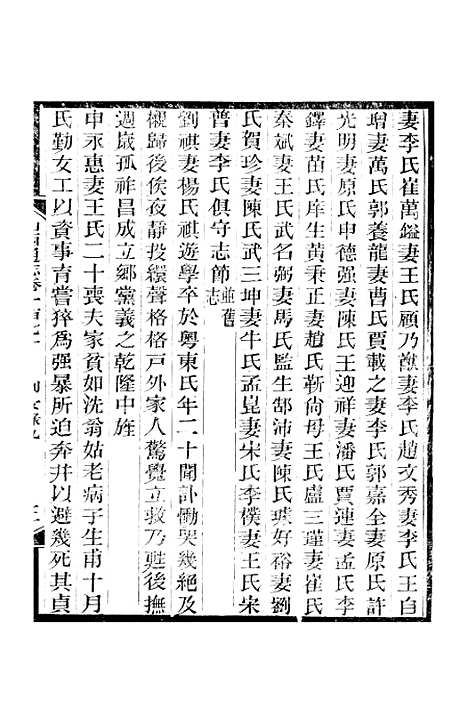 妻李氏崔萬鎰妻王氏顧乃猷妻李氏趙文秀妻李氏王自
增妻萬氏郭養龍妻曹氏賈載之妻李氏郭嘉全妻原氏許
光明妻原氏申德强妻陳氏王迎祥妻潘氏賈漣妻孟氏李
鐸妻苗氏庠生黃秉正妻趙氏靳尙母王氏盧三瑾妻崔氏
秦斌妻王氏武名弼妻馬氏監生郜沛妻陳氏璩好裕妻劉
氏賀珍妻陳氏武三坤妻牛氏孟崑妻宋氏李樸妻王氏宋
普妻李氏俱守志節並舊志
劉祺妻楊氏祺遊學卒於粤東氏年二十聞訃慟哭幾絕及
櫬歸後俟夜靜投繯聲格格戸外家人驚覺立救乃甦後撫
週嵗孤祚昌成立鄉黨義之乾隆中旌
申永惠妻王氏二十喪夫家貧如洗翁姑老病子生甫十月
氏勤女工以資事育嘗猝爲强暴所迫奔井以避幾死其貞